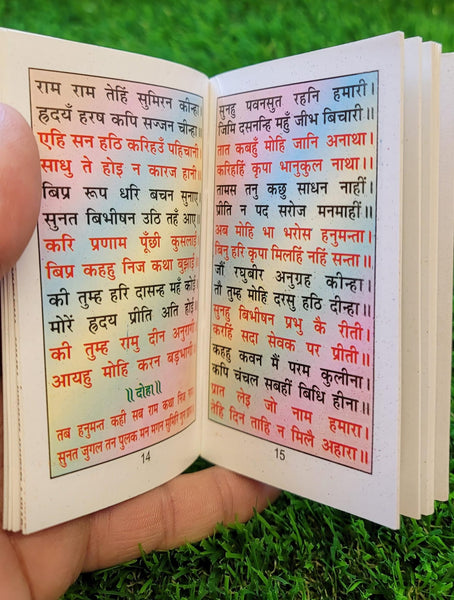 राम राम तेहिं सुमिरन कीन्हा
ह्रदयँ हरष कपि सज्जन चीन्हा
एहि सन हठि करिहउँ पहिचानी
साधु ते होइ न कारज हानी
बिप्र रूप धरि बचन सुनाए
सुनत बिभीषन उठि तहँ आए
करि प्रणाम पूँछी कुसलाई
बिप्र कहहु निज कथा बुझाई
की तुम्ह हरि दासन्ह महँ कोई
मोरें ह्रदय प्रीति अति होई
की तुम्ह रामु दीन अनुरागी
आयहु मोहि करन बड़भागी
॥दोहा॥
तब हनुमन्त कही सब राम कथा निज
सुनत जुगल तन पुलक मन मगन सुमिरि गुन
14
सुनहु पवनसुत रहनि हमारी।
जिमि दसनन्हि महुँ जीभ बिचारी॥
तात कबहुँ मोहि जानि अनाथा।
करिहहिं कृपा भानुकुल नाथा॥
तामस तनु कछु साधन नाहीं।
प्रीति न पद सरोज मनमाहीं॥
अब मोहि भा भरोस हनुमन्ता।
बिनु हरि कृपा मिलहिं नहिं सन्ता॥
जौं रघुबीर अनुग्रह कीन्हा।
तौ तुम्ह मोहि दरसु हठि दीन्हा॥
सुनहु बिभीषन प्रभु कै रीती।
करहिं सदा सेवक पर प्रीती॥
कहहु कवन मैं परम कुलीना।
कपि चंचल सबहीं बिधि हीना॥
प्रात लेइ जो नाम हमारा।
तेहि दिन ताहि न मिलै अहारा॥
15